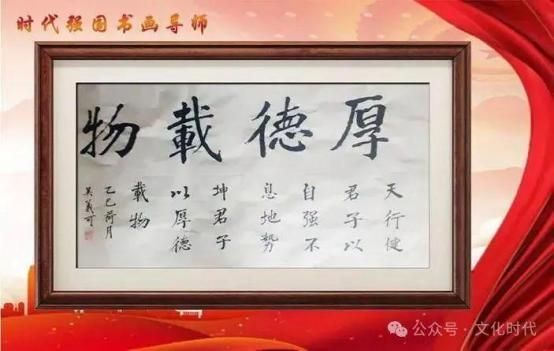 时代强国书画导师
厚德載物
天行健
君子以
自强不
息地势
坤君子
以厚德
載物
乙巳荷月
吴義可
公众号·文化时代